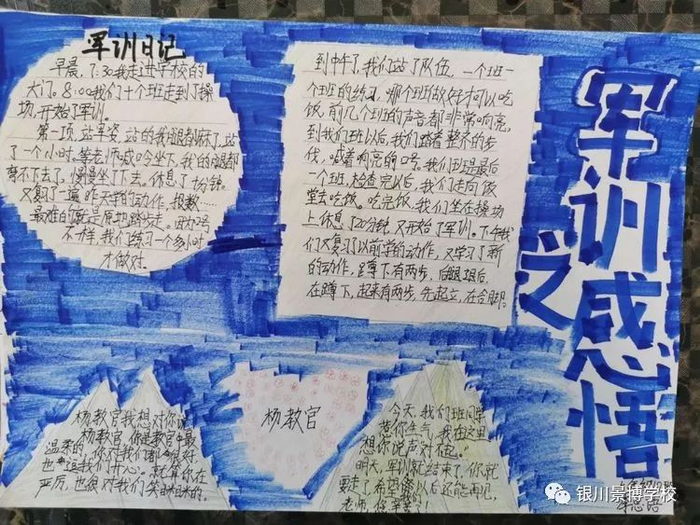 军训日记
早晨，7:30我走进学校的
大门。8:00我们十个班走到了操
场，开始了军训。
第一项，站军姿，站的我腿都麻了，站
了一个小时，等老师喊口令坐下，我的腿都
弯不下去了，慢慢坐了下去。休息了10分钟。
又复习了一遍昨天学的动作，报数……
最难的要是原地踏步走。因为
不一样，我们练习一个多小时
才做对。
到中午了，我们站了队伍，一个班一
个班的练习，哪个班做好才可以吃
饭。前几个班的声音都非常响亮，
到我们班以后，我们踏着整齐的步
伐，喊着响亮的口号。我们班是最后
一个班，检查完以后，我们走向饭
堂去吃饭。吃完饭，我们坐在操场
上休息了20分钟，又开始了军训。下午我
们又复习了以前学的动作，又学习了新
的动作，蹲下有两步，后腿
在蹲下，起来有两步，先起立，在合脚。
军训之感悟
杨教官我想对你说
杨教官，你是教官中最
温柔的，你对我们都很好，
也逗我们开心。就算你在
严厉，也很对我们笑眯眯的，
杨教官
今天，我们班同学
惹你生气，我在这里
想你说声对不起。
明天，军训就结束了，你就
要走了希望以后还能再见，
老师，你辛苦了！
银川景博学校